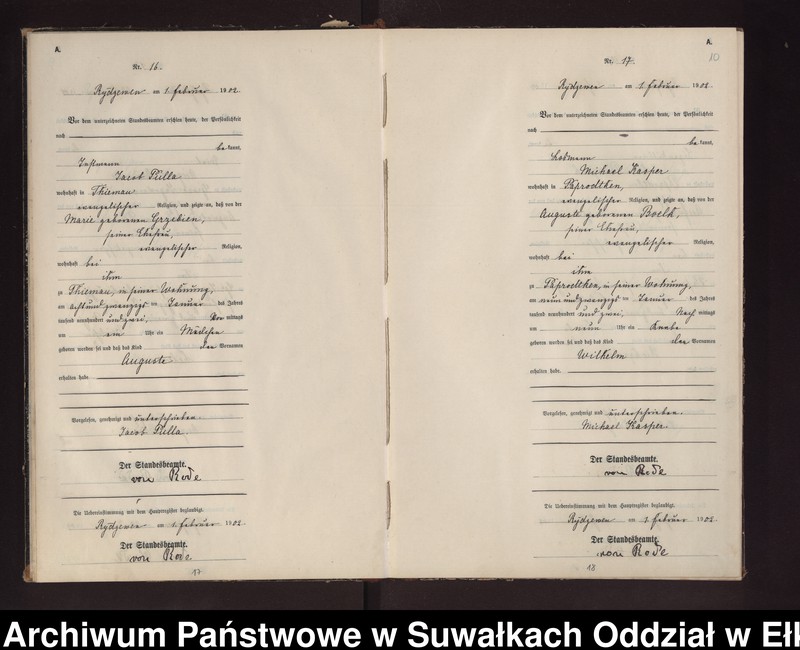 A.
Nr. 16.
Rydzewen am 1. Februar 1902.
Vor dem unterzeichneten Standesbeamten erschien heute, der Persönlichkeit
nach
bekannt,
Instmann
Jacob Pulla
wohnhaft in Thiemau
evangelischer Religion, und zeigte an, daß von der
Marie geborenen Grzebien,
seiner Ehefrau,
evangelischer Religion,
wohnhaft bei
ihm
zu Thiemau, in seiner Wohnung,
am achtundzwanzigsten Januar des Jahres
tausend neunhundert und zwei, Vor mittags
um ein Uhr ein Mädchen
geboren worden sei und daß das Kind den Vornamen
Auguste
erhalten habe.
Vorgelesen, genehmigt und unterschrieben.
Jacob Pulla
Der Standesbeamte.
von Rode
Die Uebereinstimmung mit dem Hauptregister beglaubigt.
Rydzewen am 1. Februar 1902.
Der Standesbeamte.
von Rode
17
A.
10
Nr. 17.
Rydzewen am 1. Februar 1902.
Vor dem unterzeichneten Standesbeamten erschien heute, der Persönlichkeit
nach
bekannt,
Losmann
Michael Kasper
wohnhaft in Paprodtken,
evangelischer Religion, und zeigte an, daß von der
Auguste geborenen Boelk,
seiner Ehefrau,
evangelischer Religion,
wohnhaft bei
ihm
zu Paprodtken, in seiner Wohnung,
am neunundzwanzigsten Januar des Jahres
tausend neunhundert und zwei, Nach mittags
um neun Uhr ein Knabe
geboren worden sei und daß das Kind den Vornamen
Wilhelm
erhalten habe.
Vorgelesen, genehmigt und unterschrieben.
Michael Kasper.
Der Standesbeamte.
von Rode
Die Uebereinstimmung mit dem Hauptregister beglaubigt.
Rydzewen am 1. Februar 1902.
Der Standesbeamte.
von Rode
18
Archiwum Państwowe w Suwałkach Oddział w Ełk